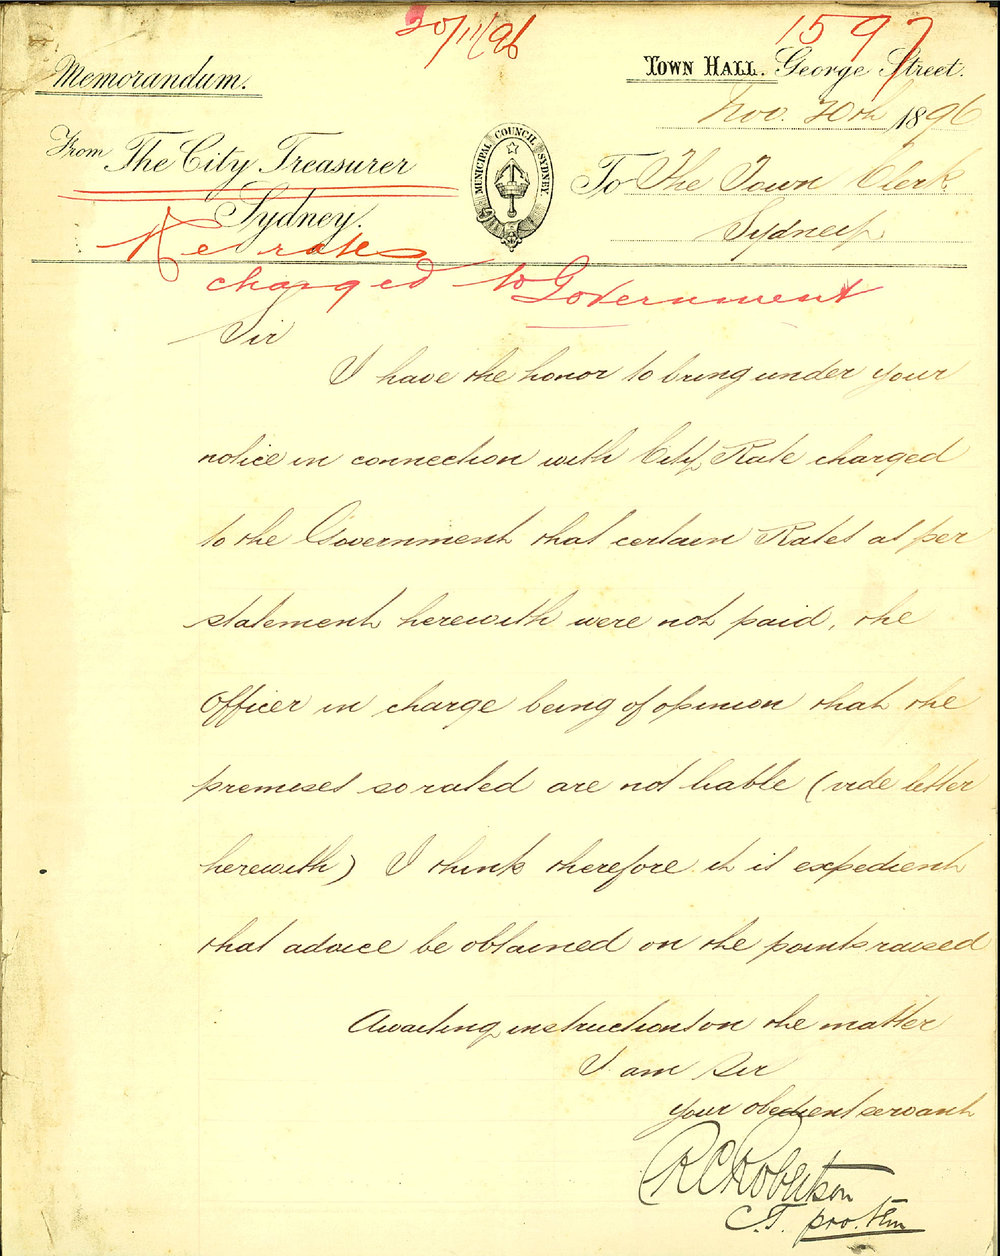 20/11/96
1597
Memorandum.
Town Hall. George Street.
Nov. 20th 1896
From The City Treasurer
Sydney.
MUNICIPAL COUNCIL SYDNEY
To The Town Clerk
Sydney
Re rates
charged to Government
Sir
I have the honor to bring under your
notice in connection with City Rate charged
to the Government that certain Rates as per
statement herewith were not paid, the
Officer in charge being of opinion that the
premises so rated are not liable (vide letter
herewith) I think therefore it is expedient
that advice be obtained on the points raised
Awaiting instructions on the matter
I am Sir
your obedient servant
R C Robertson
C.T. pro. tem